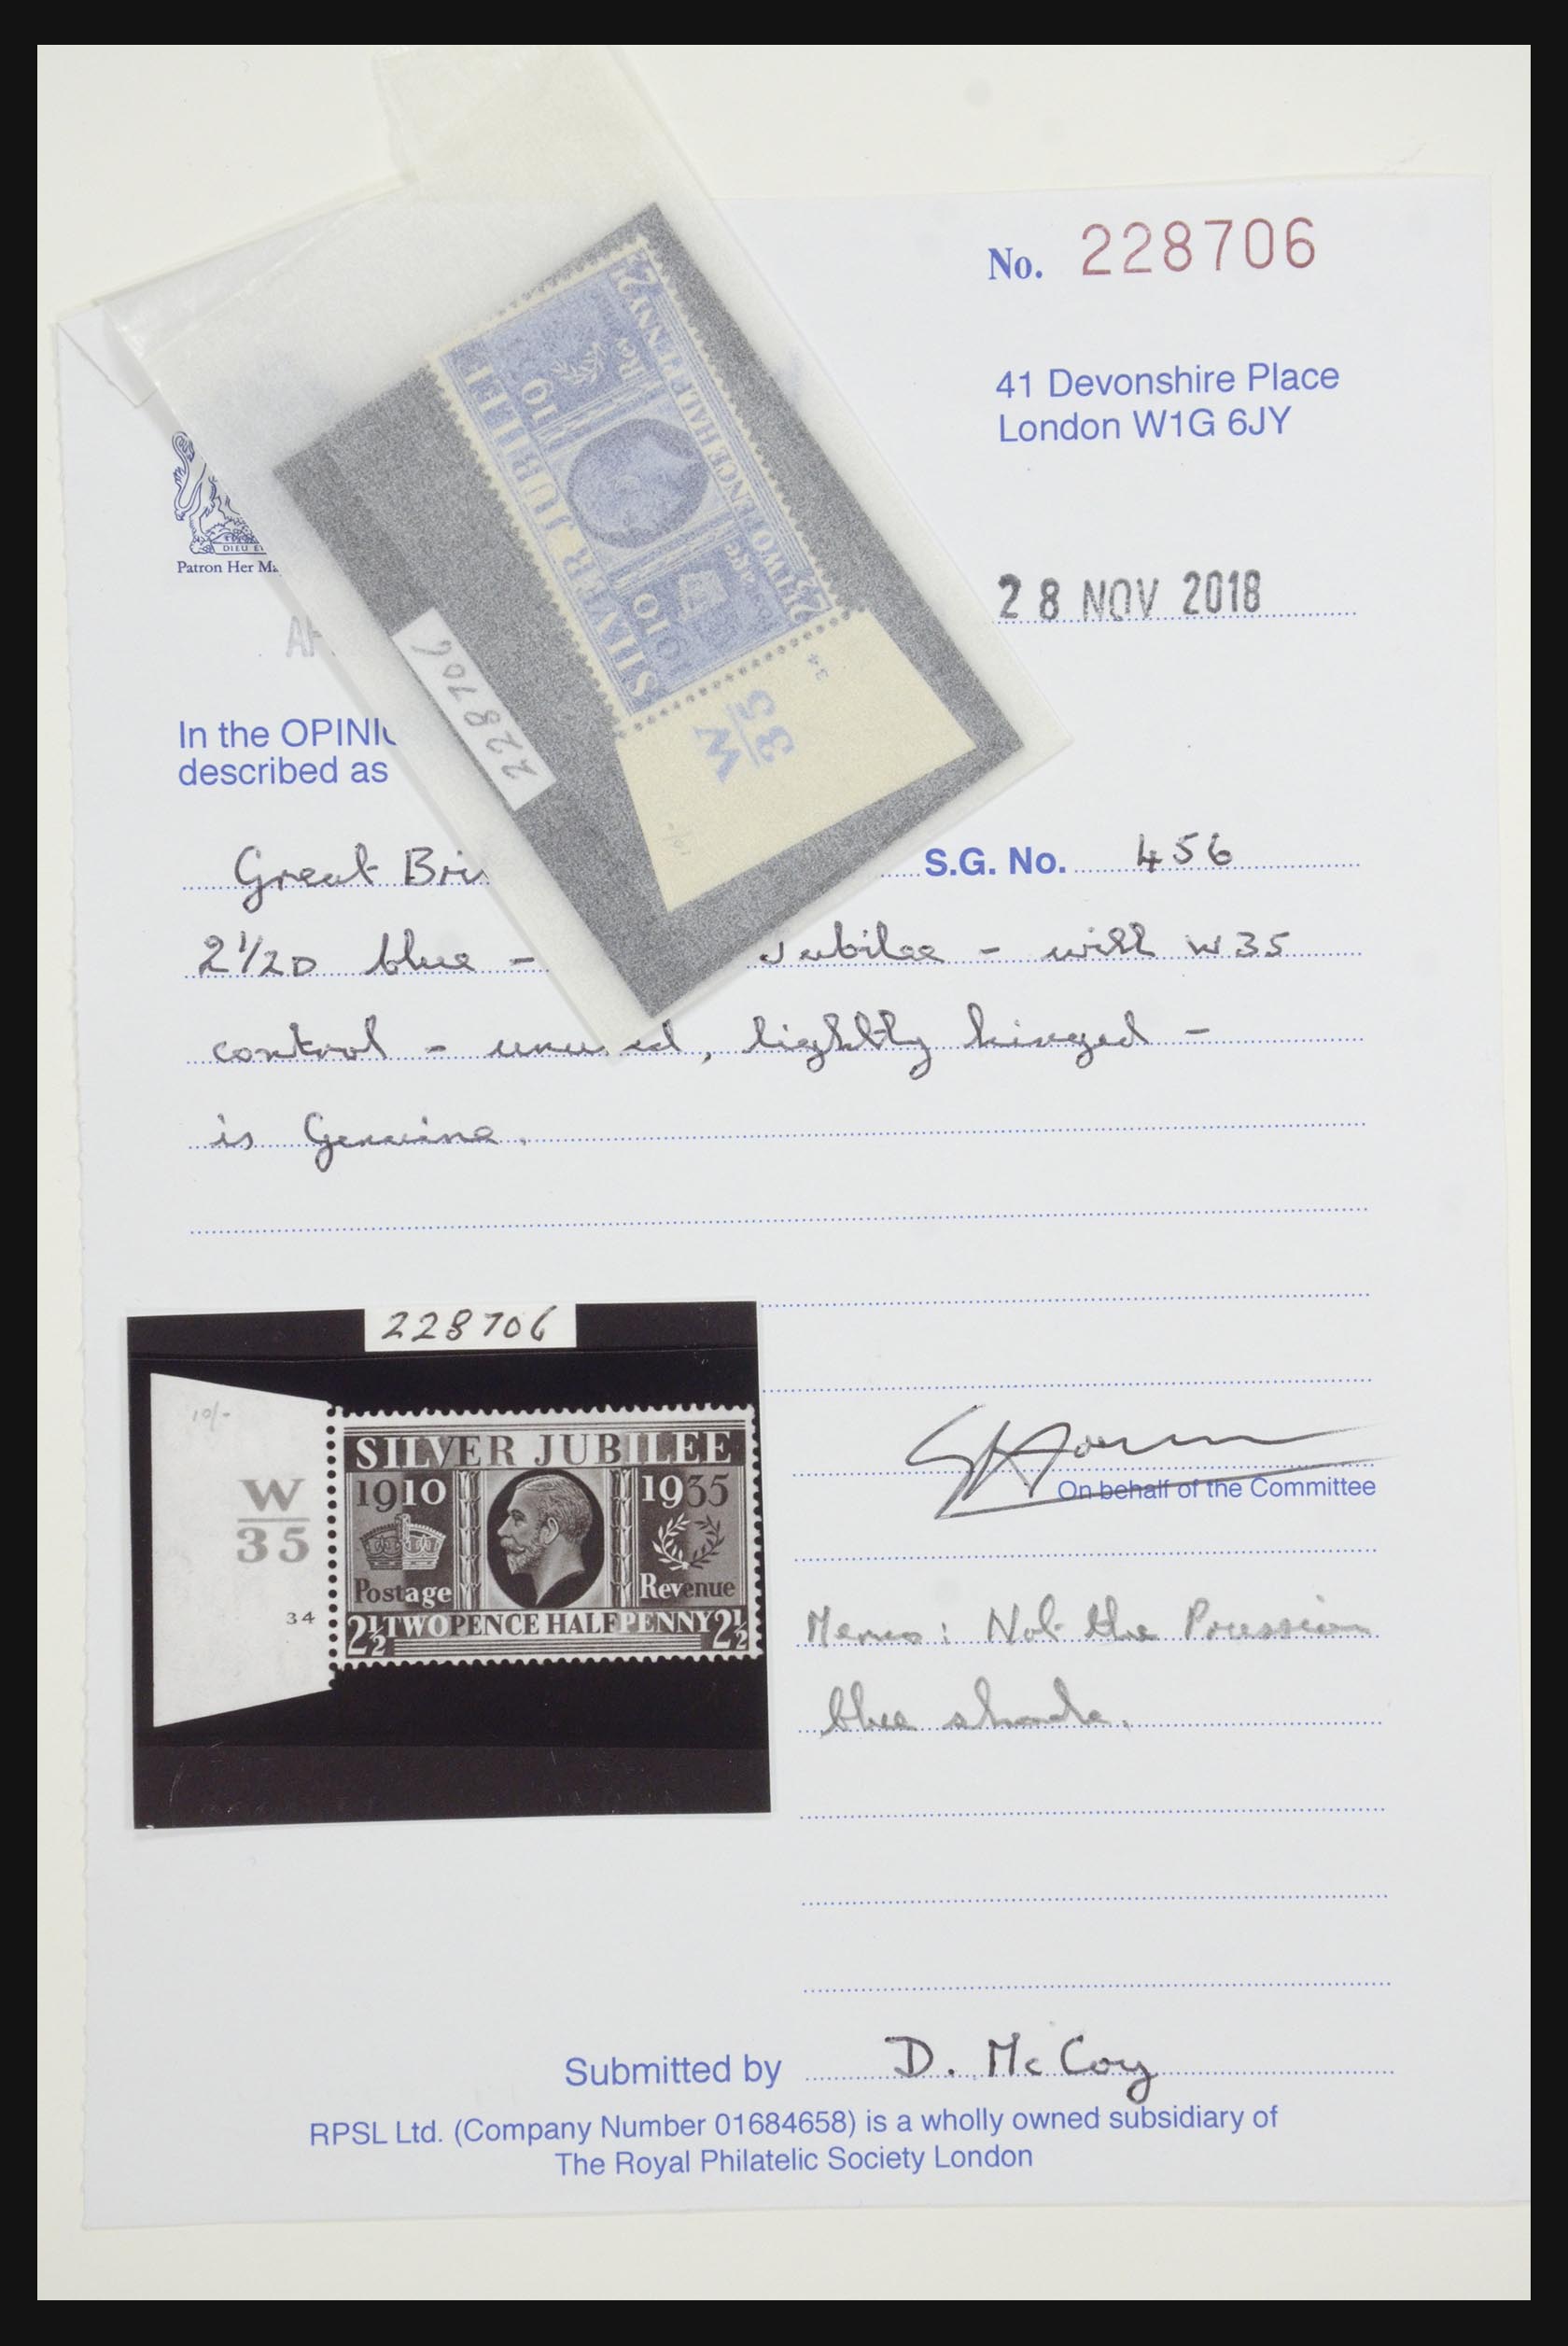 No. 228706
41 Devonshire Place
London W1G 6JY
DIEU E
Patron Her Ma
28 NOV 2018
In the OPINI
described as
Great Bri S.G. No. 456
2½D blue - Jubilee - with W35
control - unused, lightly hinged -
is Genuine.
SILVER JUBILEE
1910
Postage Rev
2½ TWOPENCE HALFPENNY 2½
W
35
34
10/-
228706
228706
10/-
SILVER JUBILEE
1910 1935
W
35
Postage Revenue
34
2½ TWOPENCE HALFPENNY 2½
On behalf of the Committee
Memo: Not the Prussian
blue shade.
Submitted by D. McCoy
RPSL Ltd. (Company Number 01684658) is a wholly owned subsidiary of
The Royal Philatelic Society London